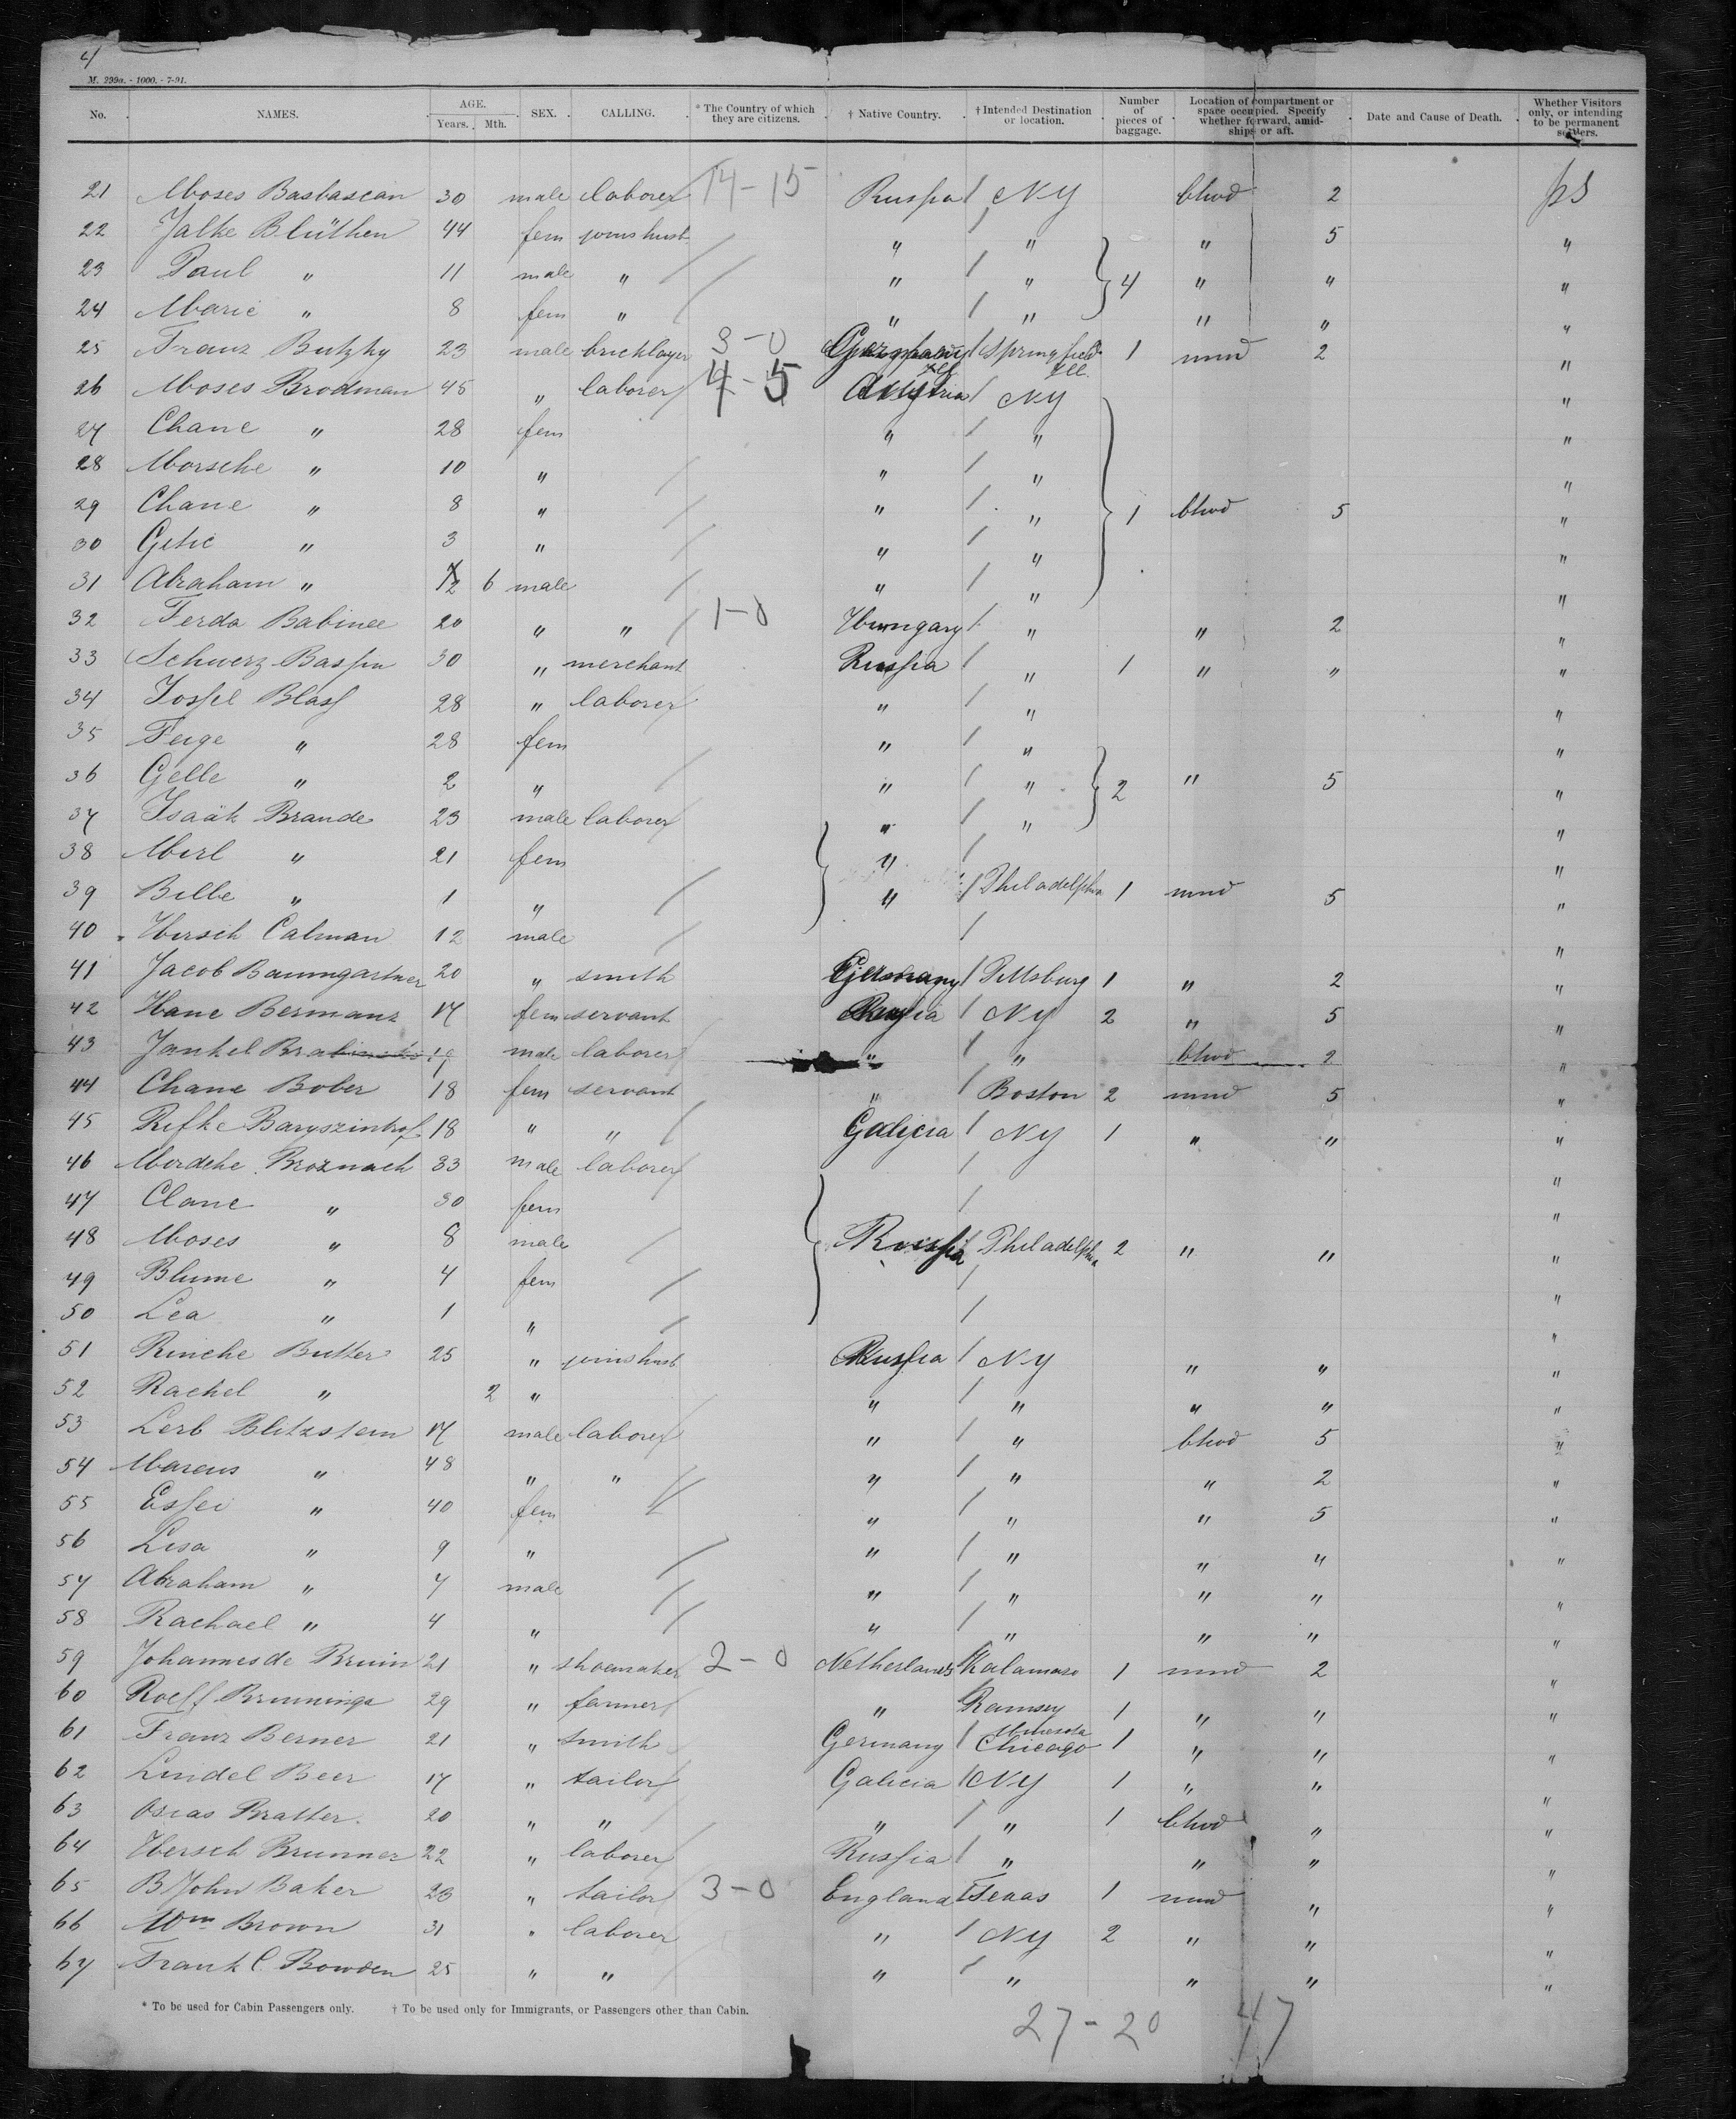 4
M. 299a. - 1000. - 7-91.
No. NAMES. AGE. Years. Mth. SEX. CALLING. * The Country of which they are citizens. † Native Country. † Intended Destination or location. Number of pieces of baggage. Location of compartment or space occupied. Specify whether forward, amidships or aft. Date and Cause of Death. Whether Visitors only, or intending to be permanent settlers.
21 Moses Basbascan 30 male laborer 14-15 Russia / NY bhwd 2 ps
22 Jalke Blüthen 44 fem joins husb " / " " 5 "
23 Paul " 11 male " " / " 4 " " "
24 Marie " 8 fem " " / " " " "
25 Franz Butzky 23 male bricklayer 3-0 Germany / Springfield Ill 1 mwd 2 "
26 Moses Brodman 45 " laborer 4-5 Austria / NY "
27 Chane " 28 fem " / " "
28 Morsche " 10 " " / " "
29 Chane " 8 " " / " 1 bhwd 5 "
30 Getie " 3 " " / " "
31 Abraham " 6 male " / " "
32 Ferda Babinec 20 " " 1-0 Hungary / " " 2 "
33 Schwerz Bassin 30 " merchant Russia / " 1 " " "
34 Jossel Blass 28 " laborer " / " "
35 Feige " 28 fem " / " "
36 Gelle " 2 " " / " 2 " 5 "
37 Isaäk Brande 23 male laborer " / " "
38 Merl " 21 fem " / "
39 Beile " 1 " " / Philadelphia 1 mwd 5 "
40 Hersch Calman 12 male / "
41 Jacob Baumgartner 20 " smith Germany / Pittsburg 1 " 2 "
42 Hane Bermanz 17 fem servant Russia / NY 2 " 5 "
43 Jankel 19 male laborer " / " bhwd 2 "
44 Chane Bober 18 fem servant " / Boston 2 mwd 5 "
45 Rifke Baryszinhof 18 " " Galicia / NY 1 " " "
46 Mordche Broznach 33 male laborer / "
47 Clane " 30 fem / "
48 Moses " 8 male Russia / Philadelphia 2 " " "
49 Blume " 4 fem / "
50 Lea " 1 " / "
51 Rinche Butter 25 " joins husb Russia / NY " " "
52 Rachel " 2 " " / " " " "
53 Lerb Blitzstein 17 male laborer " / " bhwd 5 "
54 Marcus " 48 " " " / " " 2 "
55 Essei " 40 fem " / " " 5 "
56 Lisa " 9 " " / " " " "
57 Abraham " 7 male " / " " " "
58 Rachael " 4 " " / " " " "
59 Johannes de Bruin 21 " shoemaker 2-0 Netherlands Kalamazo 1 mwd 2 "
60 Roelf Brunninga 29 " farmer " Ramsey Minesota 1 " " "
61 Franz Berner 21 " smith Germany / Chicago 1 " " "
62 Lindel Beer 17 " tailor Galicia / NY 1 " " "
63 Osias Bratter 20 " " " / " 1 bhwd " "
64 Hersch Brunner 22 " laborer Russia / " " " "
65 B John Baker 23 " tailor 3-0 England / Texas 1 mwd " "
66 Wm Brown 31 " laborer " / NY 2 " " "
67 Frank C. Bowden 25 " " " / " " " "
* To be used for Cabin Passengers only. † To be used only for Immigrants, or Passengers other than Cabin.
27-20 47